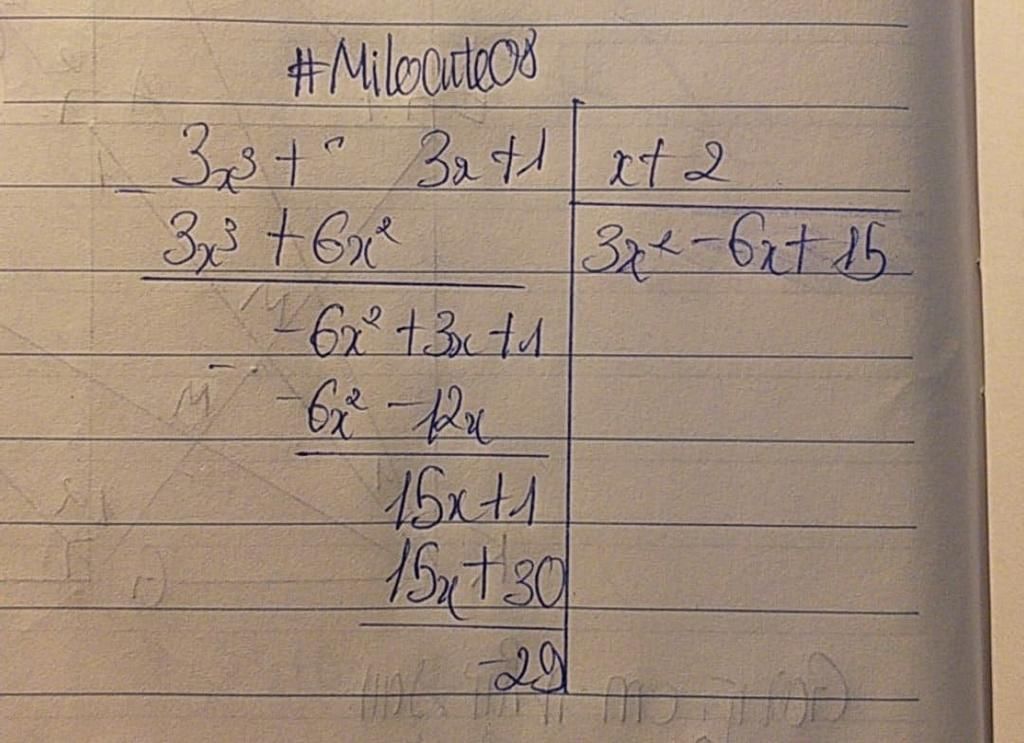 #Milocute08
3x³ + 3x + 1 | x + 2
- 3x³ + 6x² | 3x² - 6x + 15
-6x² + 3x + 1
- -6x² - 12x
15x + 1
15x + 30
-29